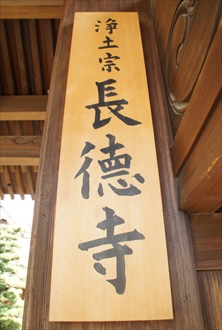 浄土宗
長徳寺